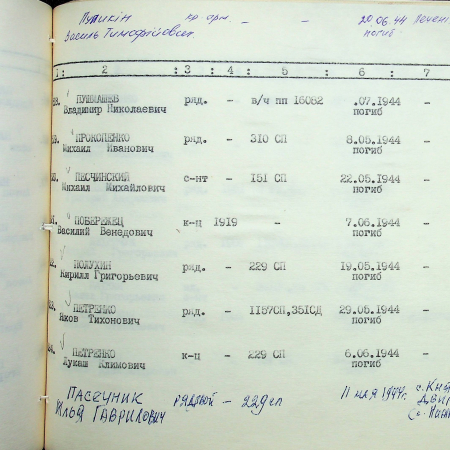 Пупикін кр арм - - 20.06.44 Печені
Василь Тимофійович погиб
1: 2 :3 :4 : 5 : 6 : 7
ПУШМАШЕВ ряд. - в/ч пп 16052 .07.1944 -
Владимир Николаевич погиб
ПРОКОПЕНКО ряд. - 310 СП 8.05.1944 -
Михаил Иванович погиб
ПЕСЧИНСКИЙ с-нт - 151 СП 22.05.1944 -
Михаил Михайлович погиб
ПОБЕРЕЖЕЦ к-ц 1919 - 7.06.1944 -
Василий Венедович погиб
ПОЛУХИН ряд. - 229 СП 19.05.1944 -
Кирилл Григорьевич погиб
ПЕТРЕНКО ряд. - 1157СП,351СД 29.05.1944 -
Яков Тихонович погиб
ПЕТРЕНКО к-ц - 229 СП 6.06.1944 -
Лукаш Климович погиб
ПАСЕЧНИК РЯДОВОЙ - 229сп 11 мая 1944г.
Илья ГАВРИЛОВИЧ